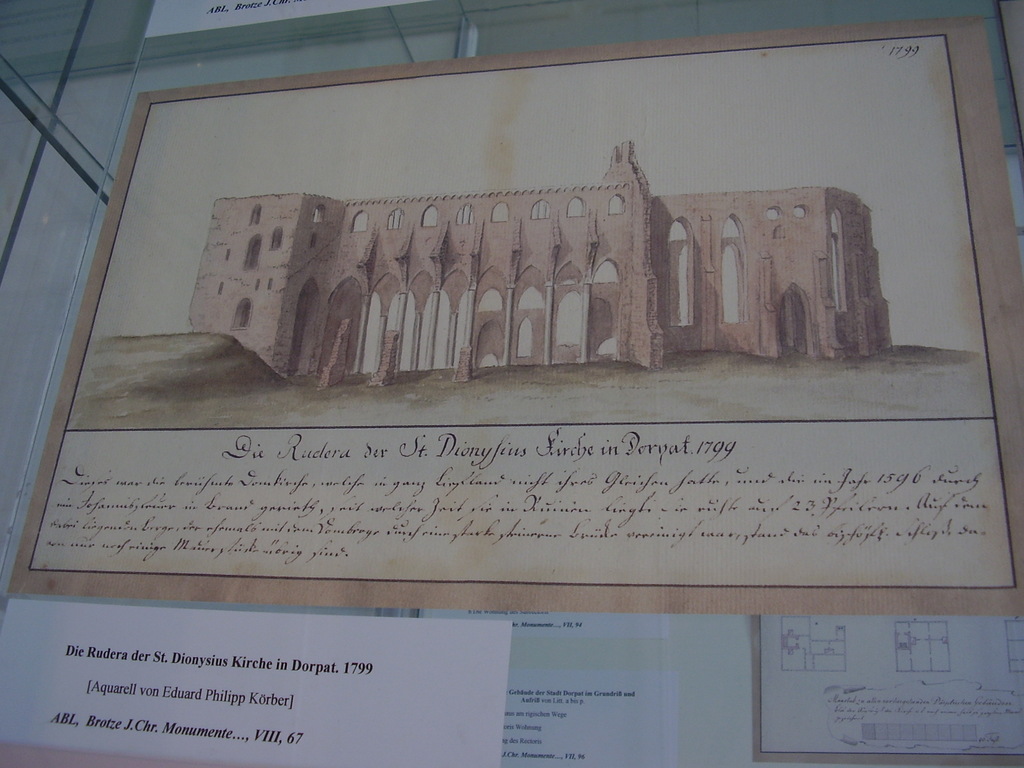 ABL, Brotze J.Chr.
1799
Die Rudera der St. Dionysius Kirche in Dorpat. 1799
Dieses war die berühmte Domkirche, welche in ganz Liefland nicht ihres Gleichen hatte, und die im Jahr 1596 durch
ein Johannisfeuer in Brand gerieth, seit welcher Zeit sie in Ruinen liegt. Sie ruhte auf 23 Pfeilern. Auf dem
dabei liegenden Berge, der ehemals mit dem Domberge durch eine starke steinerne Brücke vereinigt war, stand das bischöfl. Schloß, da-
von nur noch einige Mauerstücke übrig sind.
Die Rudera der St. Dionysius Kirche in Dorpat. 1799
[Aquarell von Eduard Philipp Körber]
ABL, Brotze J.Chr. Monumente..., VIII, 67
Monumente..., VII, 94
Gebäude der Stadt Dorpat im Grundriß und
Aufriß von Litt. a bis p.
am rigischen Wege
Wohnung
des Rectoris
J.Chr. Monumente..., VII, 96